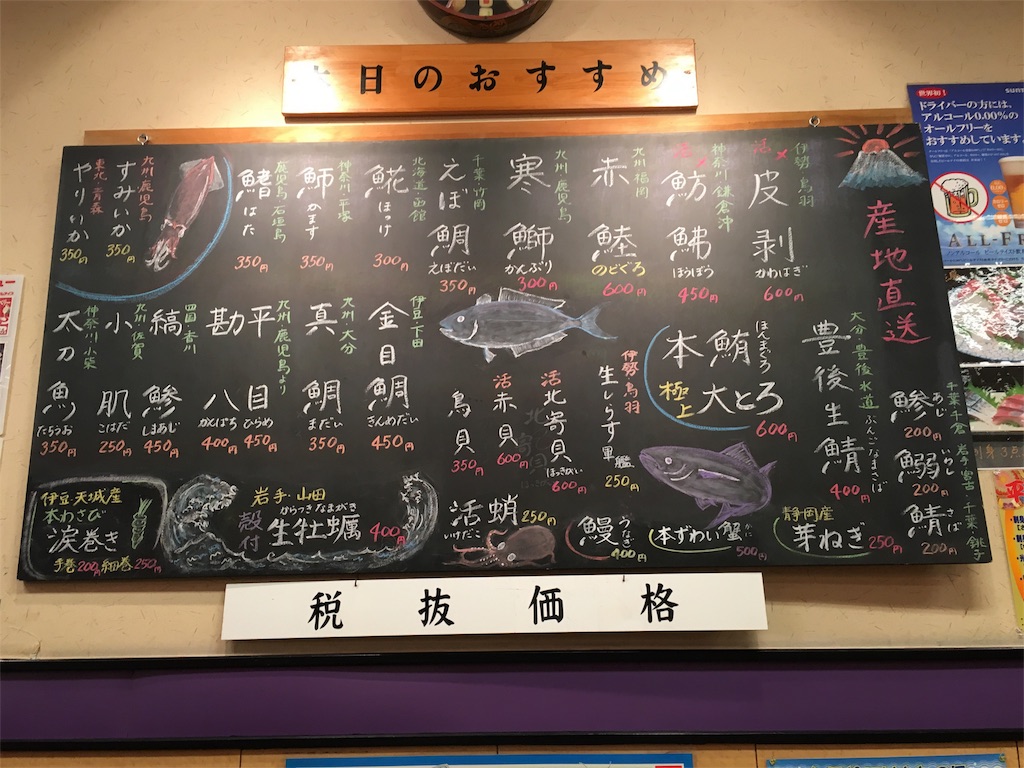 日のおすすめ
産地直送
伊勢 鳥羽
活
皮剥
かわはぎ
600円
神奈川 鎌倉沖
活
魴鮄
ほうぼう
450円
九州 福岡
赤鯥
のどぐろ
600円
九州 鹿児島
寒鰤
かんぶり
300円
千葉 竹岡
えぼ鯛
えぼだい
350円
北海道 函館
ほっけ
300円
神奈川 平塚
350円
鹿児島 石垣島
はた
350円
九州 鹿児島
すみいか
350円
東北 青森
やりいか
350円
千葉 千倉
鯵
あじ
200円
鰯
いわし
200円
千葉 銚子
鯖
さば
200円
大分・豊後水道
豊後生鯖
ぶんごなまさば
400円
本鮪
ほんまぐろ
極上
大とろ
600円
伊勢 鳥羽
生しらす軍艦
250円
活北寄貝
ほっきがい
600円
活赤貝
600円
鳥貝
350円
伊豆・下田
金目鯛
きんめだい
450円
九州・大分
真鯛
まだい
350円
九州・鹿児島より
平目
ひらめ
450円
勘八
かんぱち
400円
四国・香川
縞鯵
しまあじ
450円
九州・佐賀
小肌
こはだ
250円
神奈川 小柴
太刀魚
たちうお
350円
静岡産
芽ねぎ
250円
本ずわい蟹
かに
500円
鰻
うなぎ
400円
活蛸
いけだこ
250円
岩手・山田
からつきなまがき
殻付
生牡蠣
400円
伊豆・天城産
本わさび
涙巻き
手巻200円 細巻250円
税抜価格
世界初!
SUNT
ドライバーの方には、
アルコール0.00%の
オールフリーを
おすすめしています
ALL-F